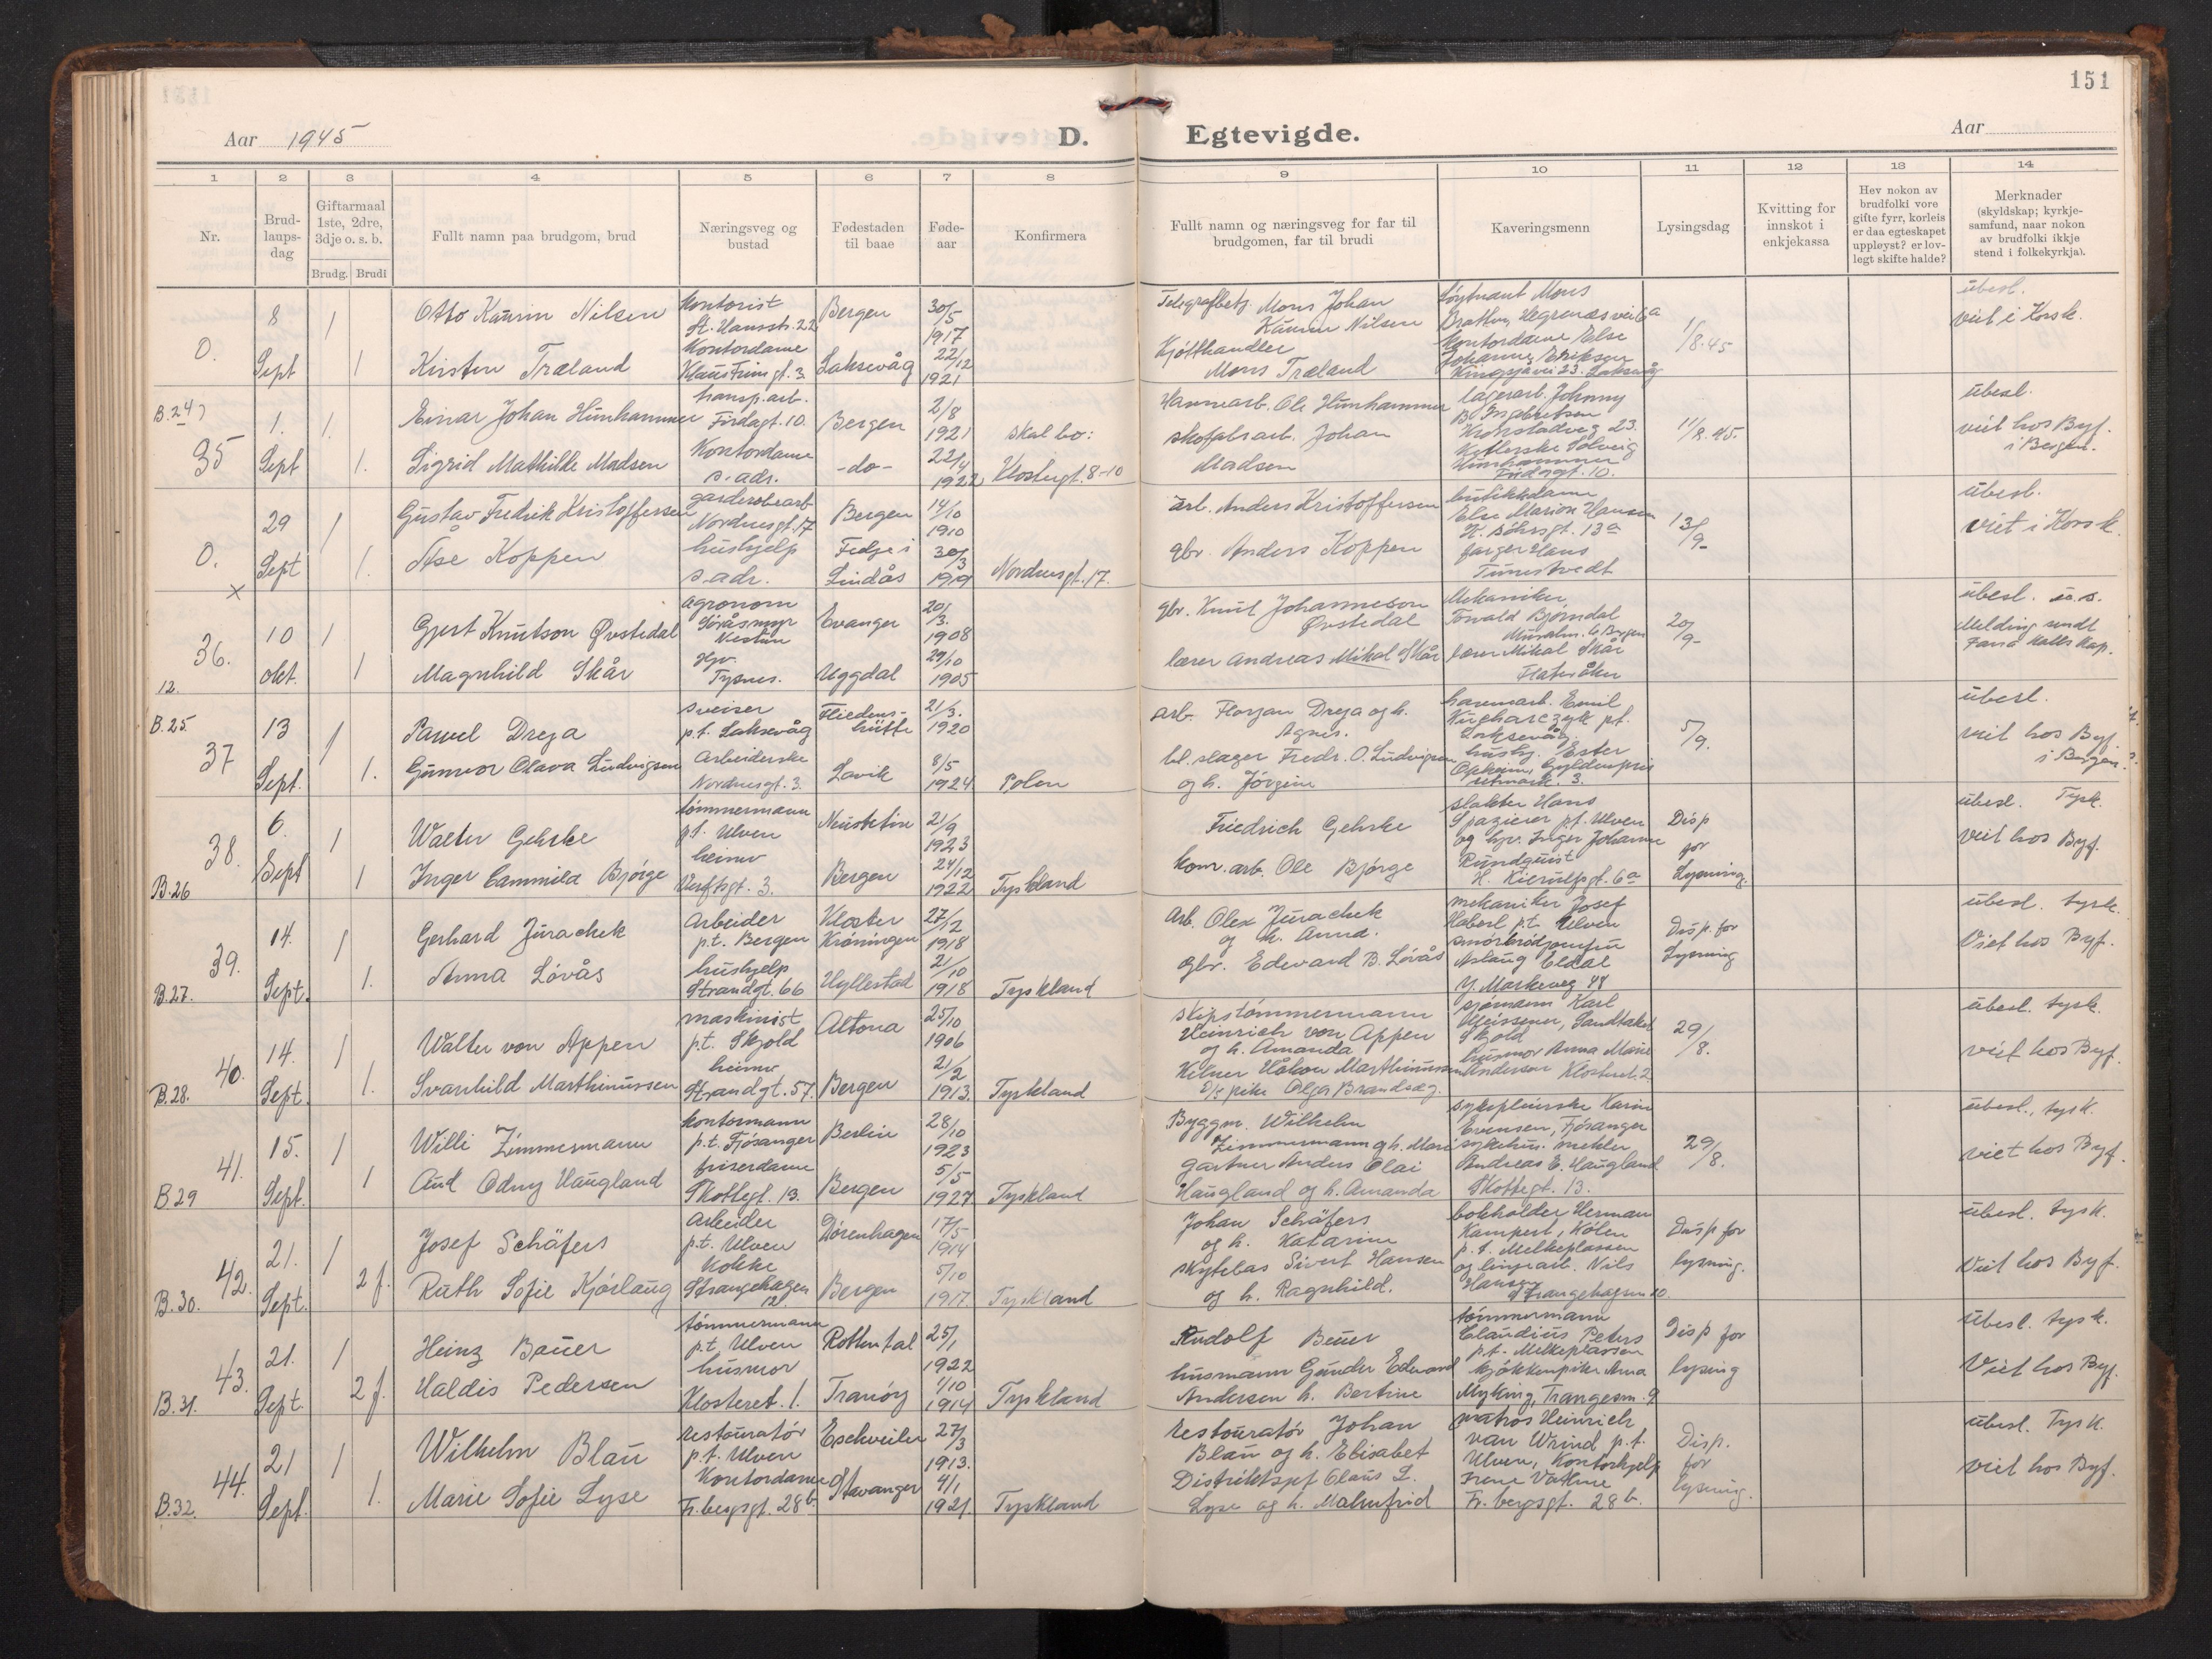 151
Aar 1945
D.
Egtevigde.
Aar
1 2 3 4 5 6 7 8 9 10 11 12 13 14
Nr.
Brud-
laups-
dag
Giftarmaal
1ste, 2dre,
3dje o. s. b.
Brudg. Brudi
Fullt namn paa brudgom, brud
Næringsveg og
bustad
Fødestaden
til baae
Føde-
aar
Konfirmera
Fullt namn og næringsveg for far til
brudgomen, far til brudi
Kaveringsmenn
Lysingsdag
Kvitting for
innskot i
enkjekassa
Hev nokon av
brudfolki vore
gifte fyrr, korleis
er daa egteskapet
uppløyst? er lov-
legt skifte halde?
Merknader
(skyldskap; kyrkje-
samfund, naar nokon
av brudfolki ikkje
stend i folkekyrkja).
0.
8
Sept
1
Otto Kaurin Nilsen
kontorist
St. Hansstr. 22
Bergen
30/5
1917
Telegrafbetj. Mons Johan
Kaurin Nilsen
løytnant Mons
Brattun, Hegrenesvei 6a
1/8.45
übesl.
viet i Korsk.
1
Kirsten Træland
Kontordame
Klaustrums gt. 3
Laksevåg
22/12
1921
Kjøtthandler
Mons Træland
kontordame Else
Johanne Eriksen
23. Laksevåg
B.24
35
1.
Sept
1.
Einar Johan Hunhammer
transp. arb.
Firdagt. 10.
Bergen
2/8
1921
skal bo:
Havnearb. Ole Hunhammer
lagerarb. Johnny
B. Ingebretsen
Kronstadveg 23.
11/8.45.
übesl.
viet hos Byf.
i Bergen.
1.
Sigrid Mathilde Madsen
Kontordame
s. adr.
-do-
22/4
1922
Klostergt. 8-10
skofabrarb. Johan
Madsen
Solveig
Hunhammer
Firdagt. 10.
0.
x
29
Sept
1
Gustav Fredrik Kristoffersen
garderobearb
Nordnesgt. 17
Bergen
14/10
1910
arb. Anders Kristoffersen
butikkdame
Else Marion Hansen
13a
13/9-
übesl.
viet i Korsk.
1.
Åse Koppen
hushjelp
s. adr.
Fedje i
Lindås
30/3
1919
Nordnesgt. 17.
gbr. Anders Koppen
farger Hans
Tunestvedt
36.
12.
10
okt.
1
Gjert Knutson Øvstedal
agronom
Søråsmyr
Nestun
Evanger
20/3.
1908
gbr. Knut Johanneson
Øvstedal
Mekaniker
Torvald Bjørndal
6 Bergen
20/9-
übesl. u.s.
Melding sendt
Fana Kalls Kap.
1
Magnhild Skår
Hjv.
Tysnes.
Uggdal
29/10
1905
lærer Andreas Mikal Skår
lærer Mikal Skår
Flateråker
B.25.
37
13
Sept.
1
Pawel Dreja
sveiser
p.t. Laksevåg
Fliedens-
hütte
21/3.
1920
arb. Florjan Dreja og h.
Agnes.
havnearb. Emil
Kucharczyk pt.
Laksevåg.
5/9.
übesl.
viet hos Byf
i Bergen.
1.
Gunvor Olava Ludvigsen
Arbeiderske
Nordnesgt. 3.
Lavik
8/5
1924
Polen
bl. slager Fredr. O. Ludvigsen
og h. Jørgine
hushj. Ester
Opheim, Gyldenpris
3.
38.
B.26
6.
Sept
1
Walter Gehrke
tømmermann
p.t. Ulven
Neustetin
21/9
1923
Friedrich Gehrke
slakter Hans
Spazierer p.t. Ulven
Disp
for
Lysning.
übesl. Tysk.
Viet hos Byf.
1
Inger Cammila Bjørge
heimv
Verftsgt. 3.
Bergen
24/12
1922
Tyskland
kom. arb. Ole Bjørge
og hjv. Inger Johanne
Rundquist
H. Kierulfsgt. 6a
39.
B.27.
14.
Sept.
1
Gerhard Jurachek
Arbeider
p.t. Bergen
Kloster
Krøningen
27/12
1918
Arb. Olex Jurachek
og h. Anna.
mekaniker Josef
Haberl p.t. Ulven
Disp. for
Lysning
übesl. tysk.
Viet hos Byf.
1.
Anna Løvås
hushjelp
Strandgt. 66
Hyllestad
21/10
1918
Tyskland
gbr. Edevard B. Løvås
smørbrødjomfru
Aslaug Eldal
Y. Markeveg 48
40.
B.28.
14.
Sept.
1
Walter von Appen
maskinist
p.t. Skjold
Altona
25/10
1906
skipstømmermann
Heinrich von Appen
og h. Amanda
sjømann Karl
Meissener, Sandtaket
Skjold
29/8.
übesl. tysk.
viet hos Byf.
1.
Svanhild Marthinussen
heimv
Strandgt. 57.
Bergen
21/2
1913.
Tyskland
Kelner Håkon Marthinussen
pike Olga Brandsæg.
husmor Anna Marie
Anderson Klosteret. 2
41.
B.29
15.
Sept.
1
Willi Zimmermann
kontormann
p.t. Fjøsanger
Berlin
28/10
1923
Byggm. Wilhelm
Zimmermann og h. Marie
sykepleierske Karin
Evensen, Fjøsanger
sykehus. mekler
29/8.
übesl., tysk.
viet hos Byf.
1
Aud Odny Haugland
friserdame
Skottegt. 13.
Bergen
5/5
1927
Tyskland
gartner Anders Olai
Haugland og h. Amanda
Andreas E. Haugland
Skottegt. 13.
42.
B.30.
21.
Sept.
1
Josef Schäfers
Arbeider
p.t. Ulven
Dörenhagen
17/5
1914
Johan Schäfers
og h. Katarina
bokholder Herman
Kampert, Kölen
p.t. Melkeplassen
Disp for
lysning.
übesl. tysk.
Viet hos Byf.
2 f.
Ruth Sofie Kjørlaug
Kokke
Strangehagen
12.
Bergen
5/10
1917.
Tyskland
skytebas Sivert Hansen
og h. Ragnhild.
og linjearb. Nils
Hansen
Strangehagen 10.
43.
B.31.
21.
Sept.
1
Heinz Bauer
tømmermann
p.t. Ulven
Rottental
25/1
1922
Rudolf Beuer
tømmermann
Claudius Peters
p.t. Melkeplassen
Disp for
lysing
übesl. tysk.
Viet hos Byf.
2 f.
Haldis Pedersen
husmor
Klosteret. 1.
Tranøy
1/10
1914
Tyskland
husmann Gunder Edevard
Andersen h. Bertine
kjøkkenpike Anna
Myking, Trangesm. 9
44.
B.32.
21
Sept.
1
Wilhelm Blau
restauratør
p.t. Ulven
Eschweiler
27/3
1913.
restauratør Johan
Blau og h. Elisabet
matros Heinrich
van Wrind p.t.
Ulven, Kontorhjelp
Disp.
for
lysning.
übesl. Tysk.
viet hos Byf.
1.
Marie Sofie Lyse
Kontordame
Fr. bergsgt. 28b.
Stavanger
4/1
1921.
Tyskland
Distriktspf Claus L.
Lyse og h. Malmfrid
Irene Vatne
Fr. bergsgt. 28 b.